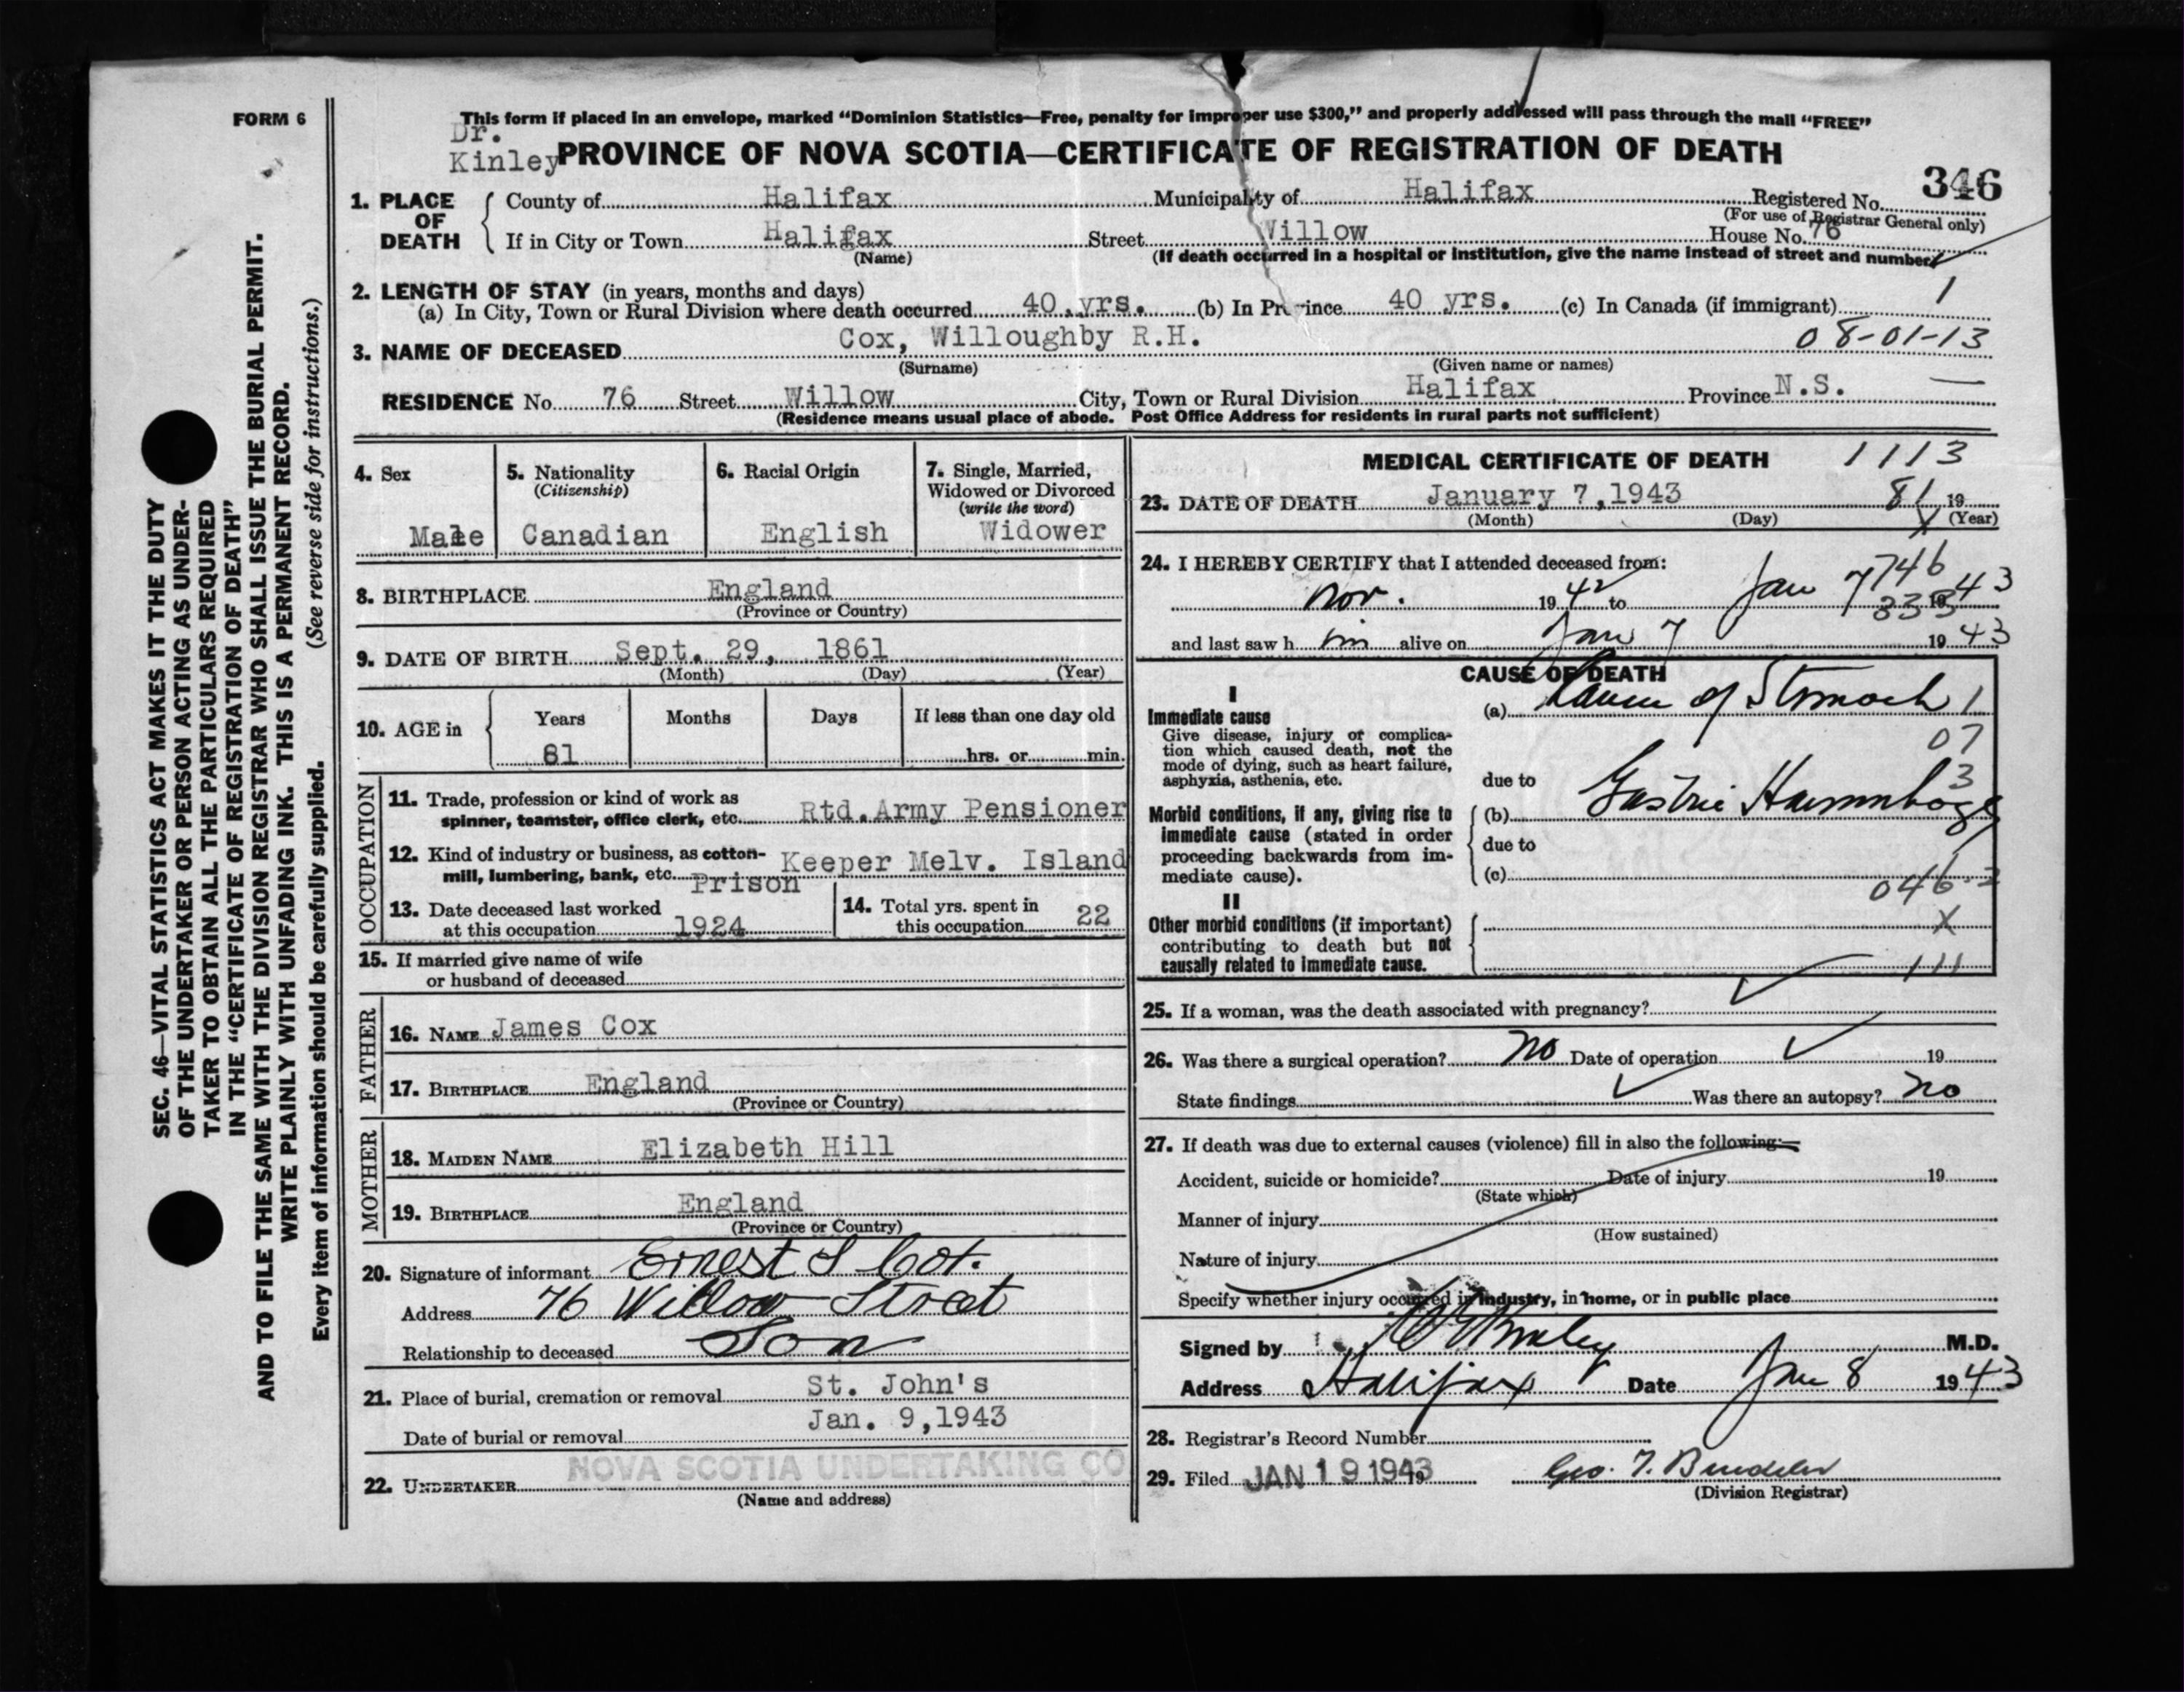 FORM 6
SEC. 46—VITAL STATISTICS ACT MAKES IT THE DUTY
OF THE UNDERTAKER OR PERSON ACTING AS UNDER-
TAKER TO OBTAIN ALL THE PARTICULARS REQUIRED
IN THE "CERTIFICATE OF REGISTRATION OF DEATH"
AND TO FILE THE SAME WITH THE DIVISION REGISTRAR WHO SHALL ISSUE THE BURIAL PERMIT.
WRITE PLAINLY WITH UNFADING INK. THIS IS A PERMANENT RECORD.
Every item of information should be carefully supplied. (See reverse side for instructions.)
This form if placed in an envelope, marked "Dominion Statistics—Free, penalty for improper use $300," and properly addressed will pass through the mail "FREE"
Dr.
Kinley PROVINCE OF NOVA SCOTIA—CERTIFICATE OF REGISTRATION OF DEATH
346
1. PLACE OF DEATH County of Halifax Municipality of Halifax Registered No.
(For use of Registrar General only)
If in City or Town Halifax Street Willow House No. 76
(Name) (If death occurred in a hospital or institution, give the name instead of street and number)
2. LENGTH OF STAY (in years, months and days)
(a) In City, Town or Rural Division where death occurred 40 yrs. (b) In Province 40 yrs. (c) In Canada (if immigrant) 1
3. NAME OF DECEASED Cox, Willoughby R.H. 08-01-13
(Surname) (Given name or names)
RESIDENCE No. 76 Street Willow City, Town or Rural Division Halifax Province N.S. —
(Residence means usual place of abode. Post Office Address for residents in rural parts not sufficient)
4. Sex
Male
5. Nationality
(Citizenship)
Canadian
6. Racial Origin
English
7. Single, Married,
Widowed or Divorced
(write the word)
Widower
8. BIRTHPLACE England
(Province or Country)
9. DATE OF BIRTH Sept. 29, 1861
(Month) (Day) (Year)
10. AGE in Years Months Days If less than one day old
81 hrs. or min.
OCCUPATION
11. Trade, profession or kind of work as
spinner, teamster, office clerk, etc. Rtd.Army Pensioner
12. Kind of industry or business, as cotton-
mill, lumbering, bank, etc. Keeper Melv. Island
Prison
13. Date deceased last worked
at this occupation 1924
14. Total yrs. spent in
this occupation 22
15. If married give name of wife
or husband of deceased
FATHER
16. NAME James Cox
17. BIRTHPLACE England
(Province or Country)
MOTHER
18. MAIDEN NAME Elizabeth Hill
19. BIRTHPLACE England
(Province or Country)
20. Signature of informant Ernest S Cox.
Address 76 Willow Street
Relationship to deceased Son
21. Place of burial, cremation or removal St. John's
Jan. 9,1943
Date of burial or removal
22. UNDERTAKER NOVA SCOTIA UNDERTAKING CO
(Name and address)
MEDICAL CERTIFICATE OF DEATH 1113
23. DATE OF DEATH January 7,1943 81 19
(Month) (Day) (Year)
24. I HEREBY CERTIFY that I attended deceased from:
746
Nov. 19 42 to Jan 7 19 43
and last saw h im alive on Jan 7 19 43
CAUSE OF DEATH
I
Immediate cause
Give disease, injury or complica-
tion which caused death, not the
mode of dying, such as heart failure,
asphyxia, asthenia, etc.
(a) Cancer of Stomach 1
07
3
due to
Morbid conditions, if any, giving rise to
immediate cause (stated in order
proceeding backwards from im-
mediate cause).
(b) Gastric Haemorrhage
due to
(c)
046.2
II
Other morbid conditions (if important)
contributing to death but not
causally related to immediate cause.
X
111
25. If a woman, was the death associated with pregnancy?
26. Was there a surgical operation? No Date of operation 19
State findings Was there an autopsy? No
27. If death was due to external causes (violence) fill in also the following:—
Accident, suicide or homicide? Date of injury 19
(State which)
Manner of injury
(How sustained)
Nature of injury
Specify whether injury occurred in industry, in home, or in public place
Signed by Kinley M.D.
Address Halifax Date Jan 8 19 43
28. Registrar's Record Number
29. Filed JAN 19 1943 19
(Division Registrar)